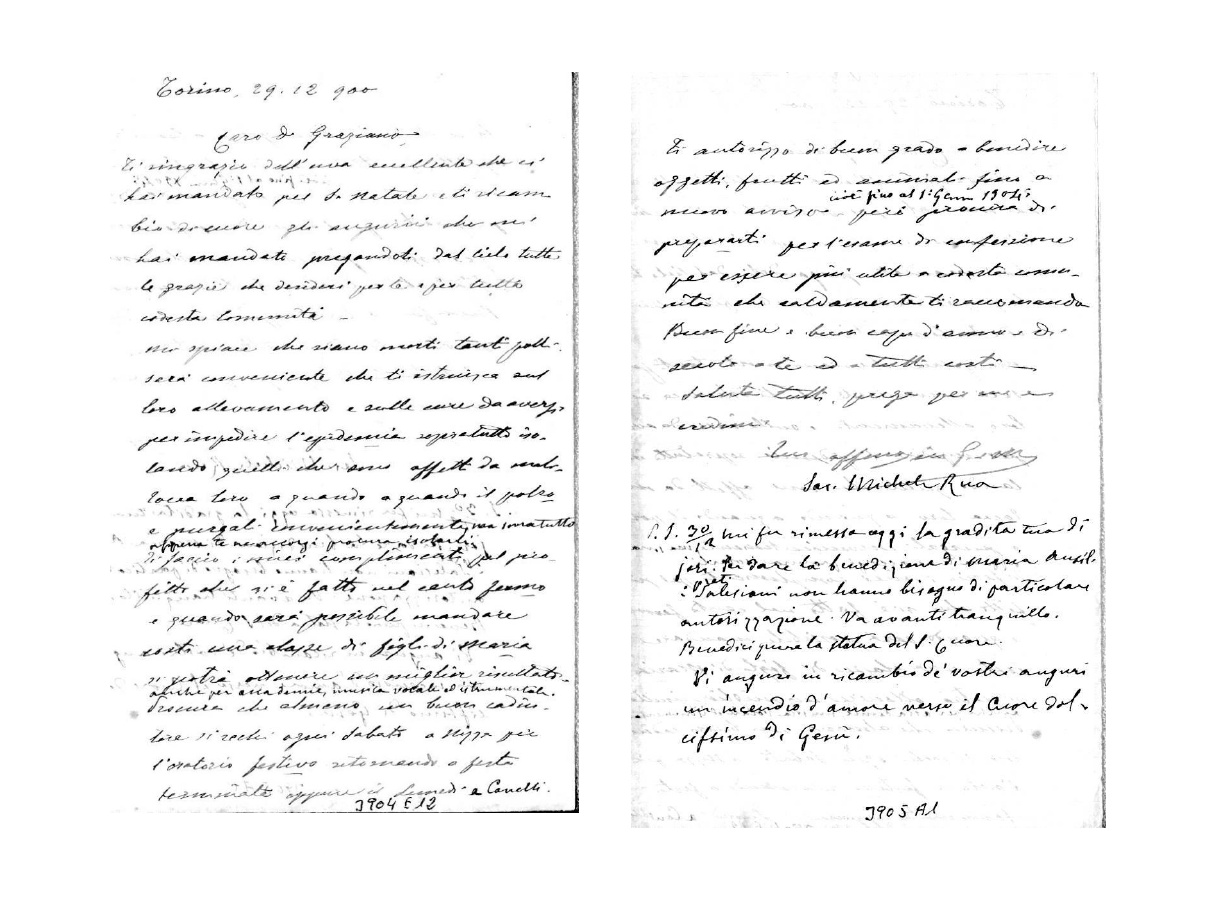 Torino, 29. 12 900
Caro D Graziano,
Ti ringrazio dell'uva eccellente che ci
hai mandato per S. Natale e ti ricam
bio di cuore gli augurii che mi
hai mandato pregandoti dal Cielo tutte
le grazie che desideri per te e per tutta
codesta Comunità
Mi spiace che siano morti tanti polli.
Sarà conveniente che ti istruisca sul
loro allevamento e sulle cure da aversi
per impedire l'epidemia sopratutto iso-
lando quelli che sono affetti da mal
Tocca loro a quando a quando il polso
e purgali convenientemente, ma sovratutto
appena te ne accorgi procura isolarli.
Ti faccio i miei complimenti pel pro-
fitto che si è fatto nel canto fermo
e quando sarà possibile mandare
costì una classe di figli di Maria
si potrà ottenere un miglior risultato
anche per accademie, musica vocale ed istrumentale.
Procura che almeno un buon
si rechi ogni Sabato a Nizza per
l'oratorio festivo ritornando a festa
terminata oppure il lunedì a Canelli.
3904 E12
Ti autorizzo di buon grado a benedire
oggetti, frutti ed animali fino a
cioè fino al 1° Genn 1904;
nuovo avviso però procura di
prepararti per l'esame di confessione
per essere più utile a codesta comu-
nità che caldamente ti raccomando
Buon fine e buon capo d'anno e di
secolo a te ed a tutti costì
Saluta tutti, prega per me e
credimi
Tuo aff.mo in G. e M.
Sac. Michele Rua
P.S. 30/12 Mi fu rimessa oggi la gradita tua di
jeri. Per dare la benedizione di Maria Ausil.
i Preti Salesiani non hanno bisogno di particolare
autorizzazione. Va avanti tranquillo.
Benedici pure la statua del S. Cuore.
Vi auguro in ricambio de' vostri auguri
un incendio d'amore verso il Cuore dol-
cissimo di Gesù.
3905 A1